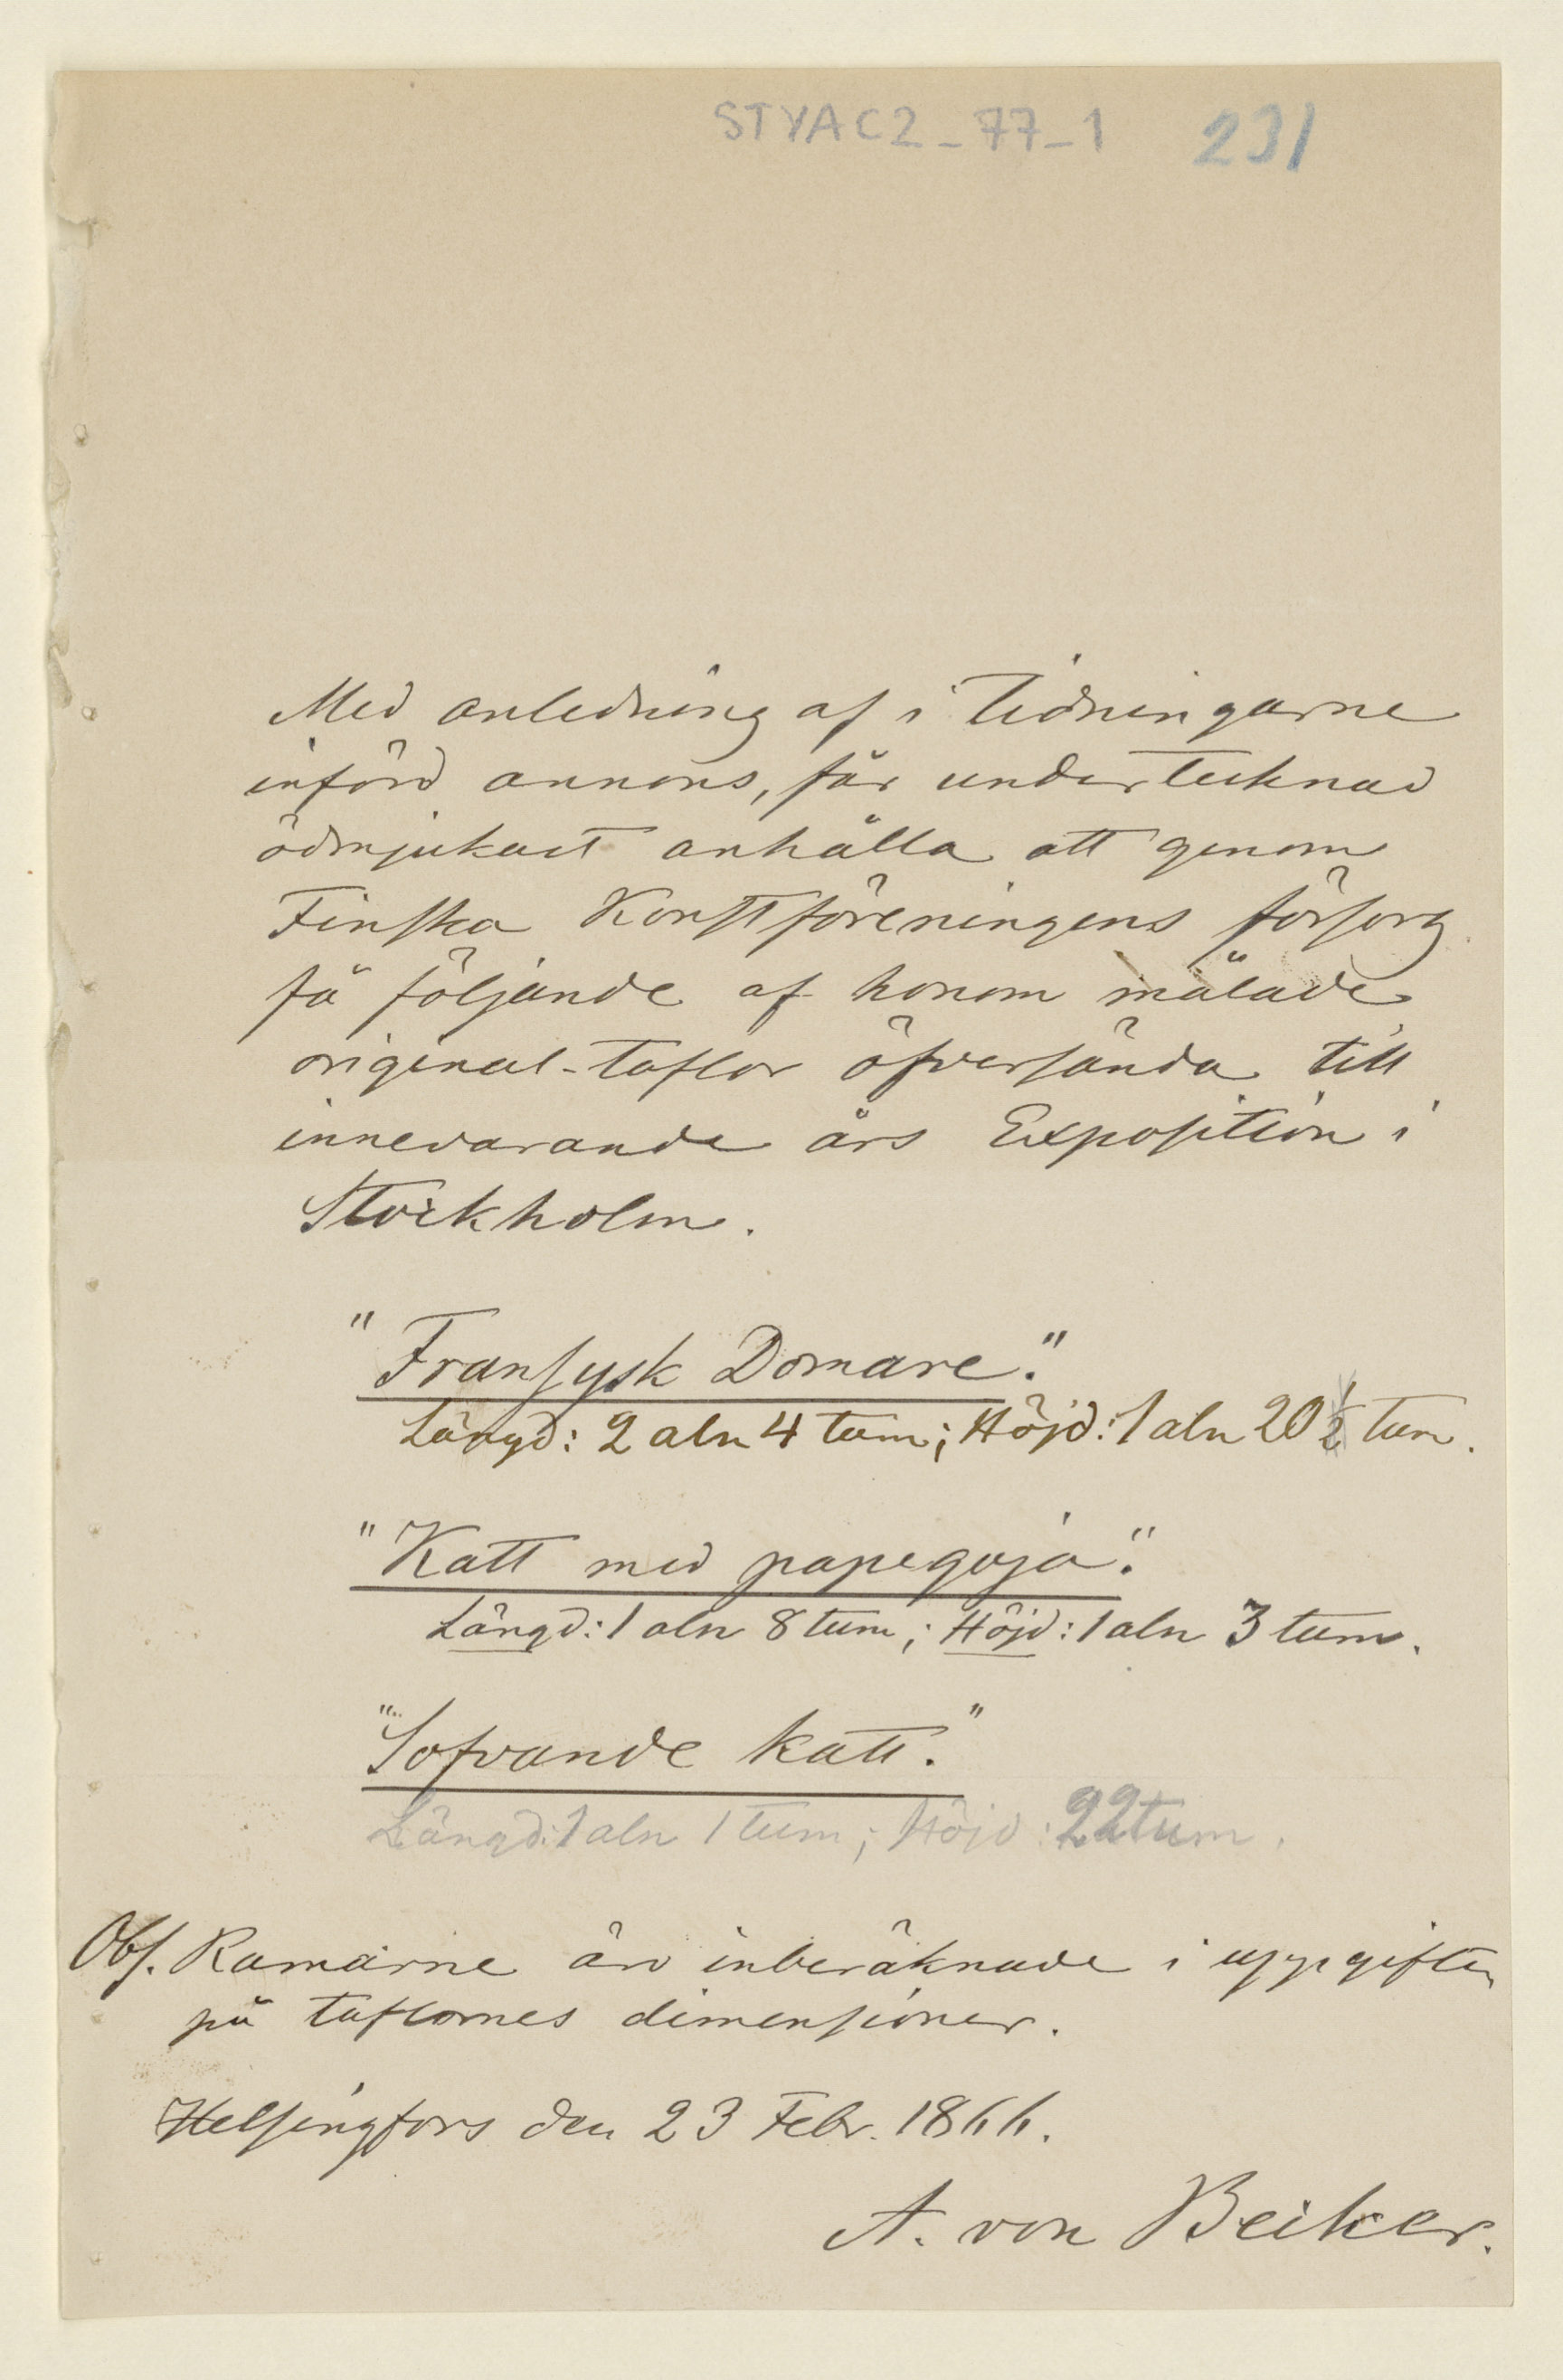 STYAC2_77_1 231
Med anledning af i Tidningarne
införd annons, får undertecknad
ödmjukast anhålla att genom
Finska Konstföreningens försorg
få följande af honom målade
original-taflor öfversända till
innevarande års Exposition i
Stockholm.
"Fransysk Domare."
Längd: 2 aln 4 tum; Höjd: 1 aln 20 1/2 tum.
"Katt med papegoja".
Längd: 1 aln 8 tum; Höjd: 1 aln 3 tum.
"Sofvande katt."
Längd: 1 aln 1 tum; Höjd: 22 tum.
Obs. Ramarne äro inberäknade i uppgiften
på taflornes dimensioner.
Helsingfors den 23 Febr. 1866.
A. von Becker.